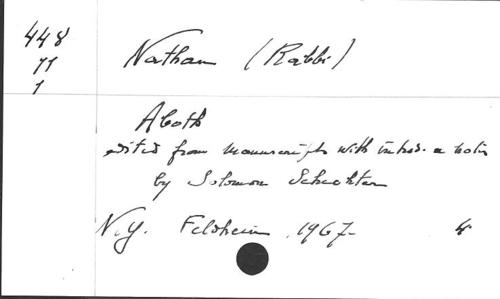 448
11
1
Nathan (Rabbi)
Aboth
edited from manuscripts with introd. a notes
by Solomon Schechter
N.Y. Feldheim 1967-
4°